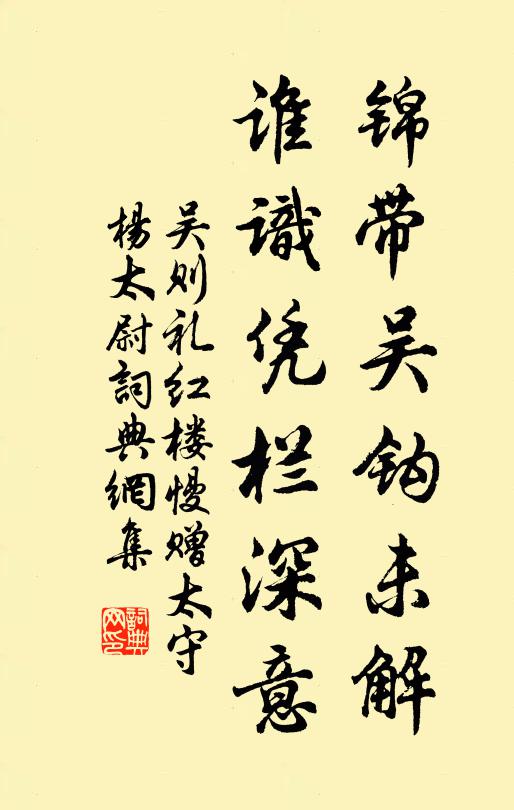 锦带吴钩未解
谁識凭栏深意
吴则礼红楼慢赠太守
楊太尉詞典網集
詞典
网印